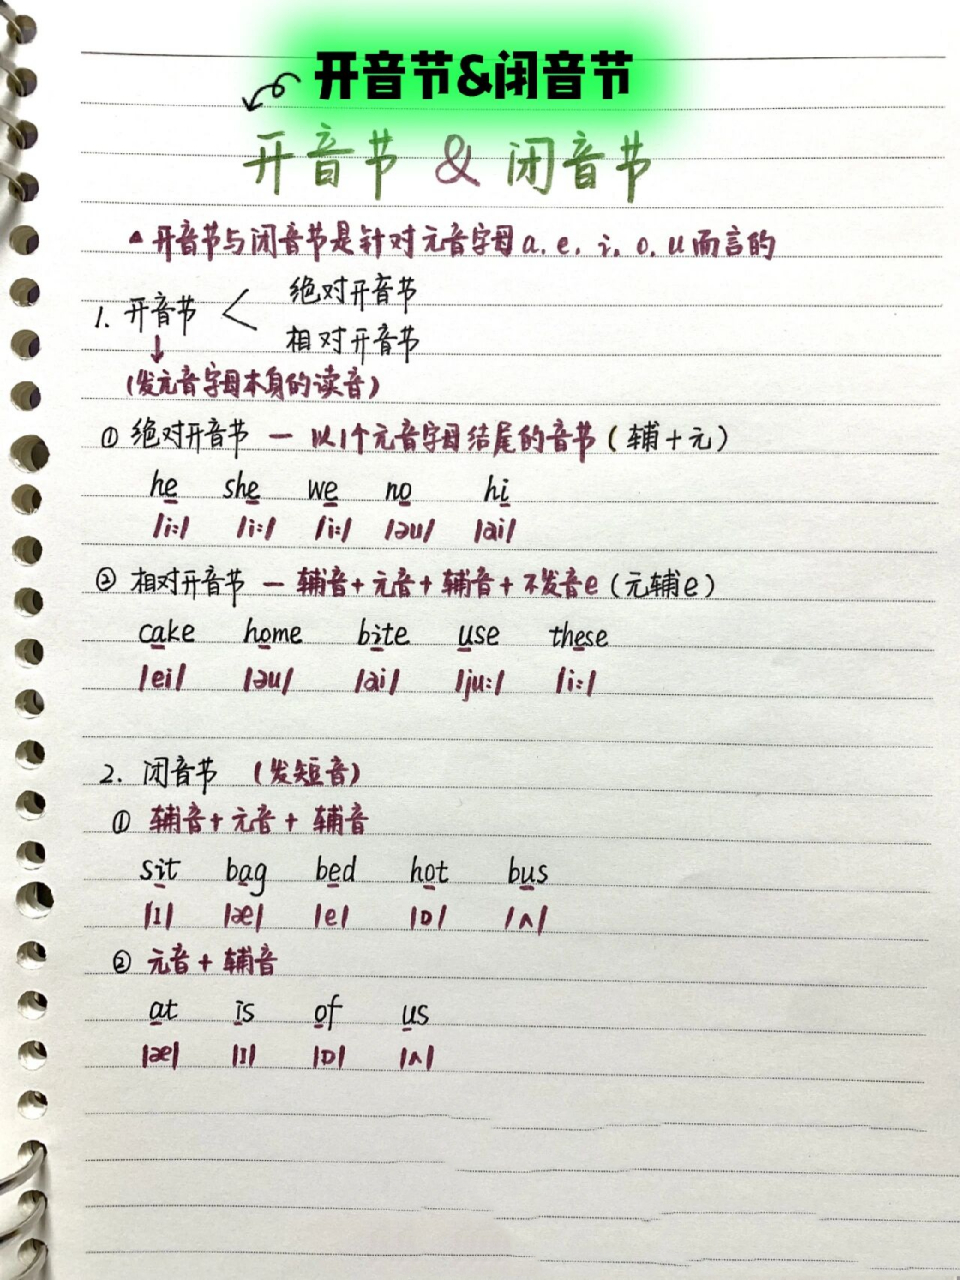 开音节&闭音节
开音节 & 闭音节
▲ 开音节与闭音节是针对元音字母a. e. i. o. u而言的
1. 开音节 < 绝对开音节
相对开音节
↓
(发元音字母本身的读音)
① 绝对开音节 — 以1个元音字母结尾的音节(辅+元)
he she we no hi
/i:/ /i:/ /i:/ /əu/ /ai/
② 相对开音节 — 辅音+元音+辅音+不发音e(元辅e)
cake home bite use these
/ei/ /əu/ /ai/ /ju:/ /i:/
2. 闭音节 (发短音)
① 辅音+元音+辅音
sit bag bed hot bus
/ɪ/ /æ/ /e/ /ɒ/ /ʌ/
② 元音+辅音
at is of us
/æ/ /ɪ/ /ɒ/ /ʌ/